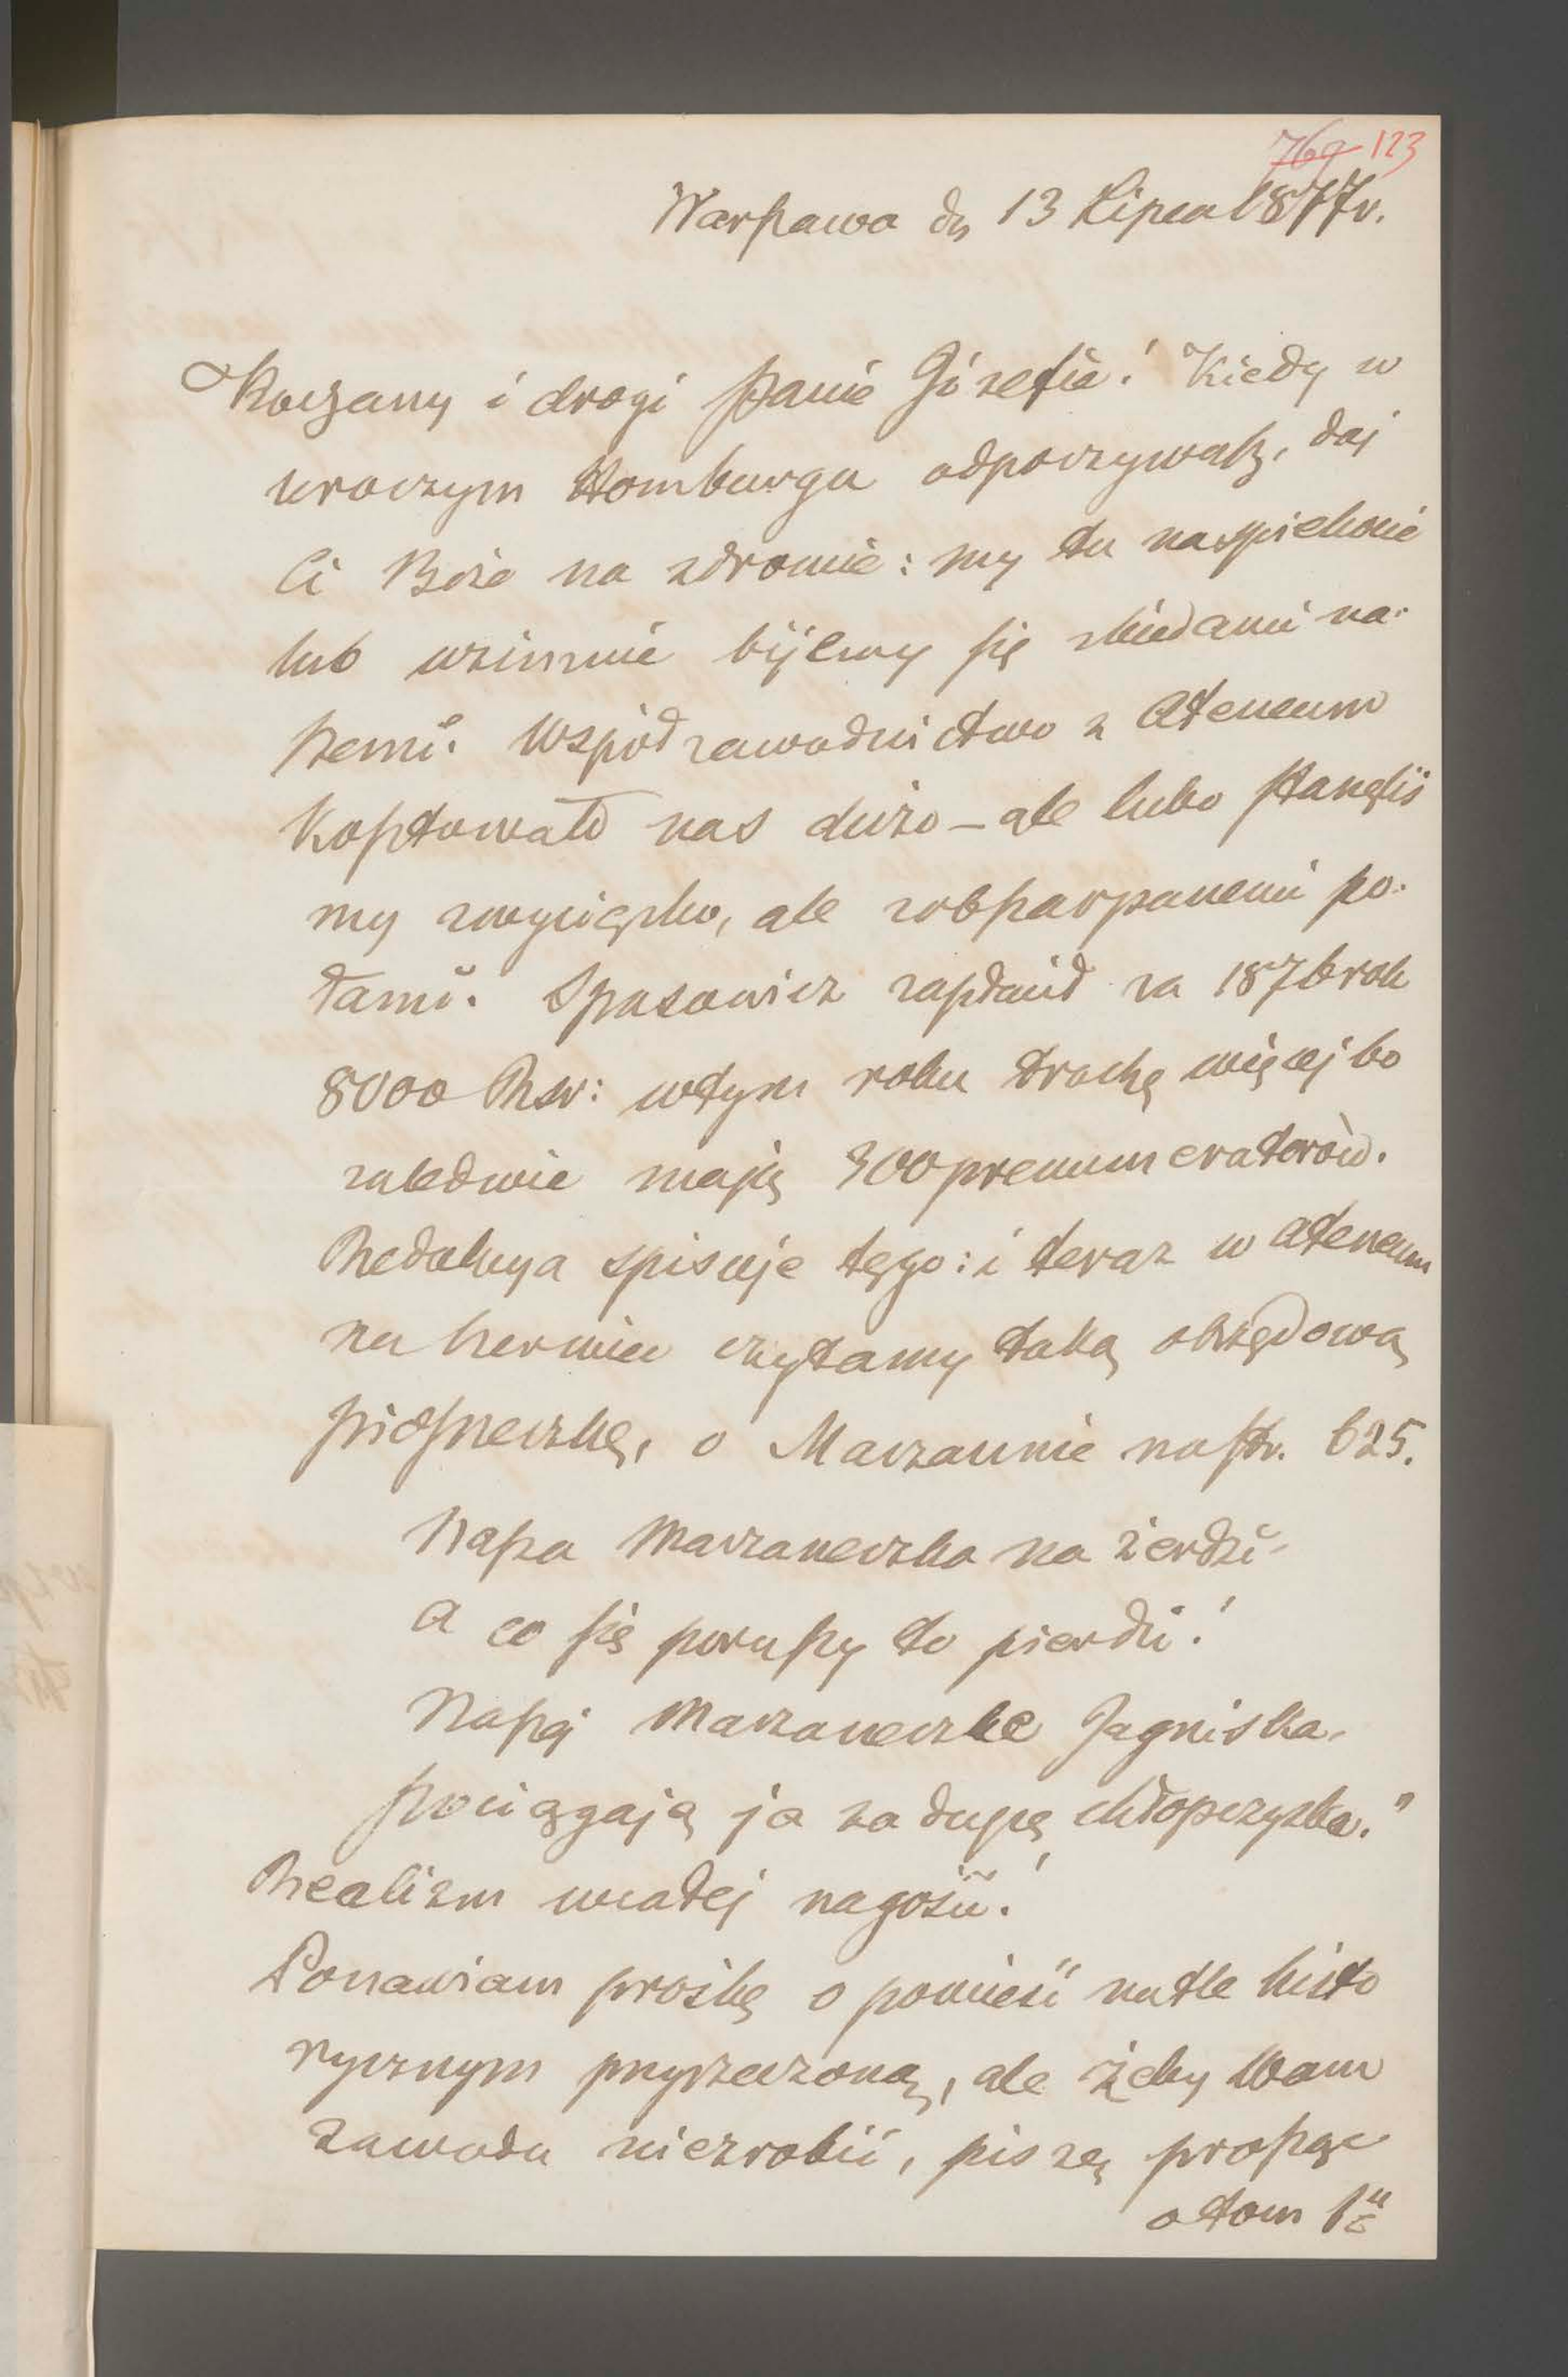 769 123
Warszawa dn 13 Lipca 1877 r.
Kochany i drogi Panie Józefie! Kiedy w
uroczym Homburgu odpoczywasz, daj
Ci Boże na zdrowie: my tu na spiekocie
lub wzimnie bijemy się z biedami na-
szemi. Współzawodnictwo z Ateneum
kosztowało nas dużo – ale lubo stanęliś
my zwycięsko, ale z obszarpanemi po-
łami. Spasowicz zapłacił za 1876 rok
8000 Rsr: wtym roku trochę więcej bo
zaledwie mają 300 prenumeratorów.
Redakcya spisuje tęgo: i teraz w Ateneum
na Czerwiec czytamy taką obrzędową
piosneczkę, o Marzannie na str. 625.
Nasza Marzaneczka na żerdzi-
A co się poruszy to pierdzi!
Naszej Marzaneczke Jagniska.
pociągają ja za dupę chłopczyska."
Realizm wcałej nagości!
Ponawiam prośbę o powieść na tle histo
rycznym przyrzeczoną, ale żeby Wam
zawodu niezrobić, piszę prosząc
o tom 1u